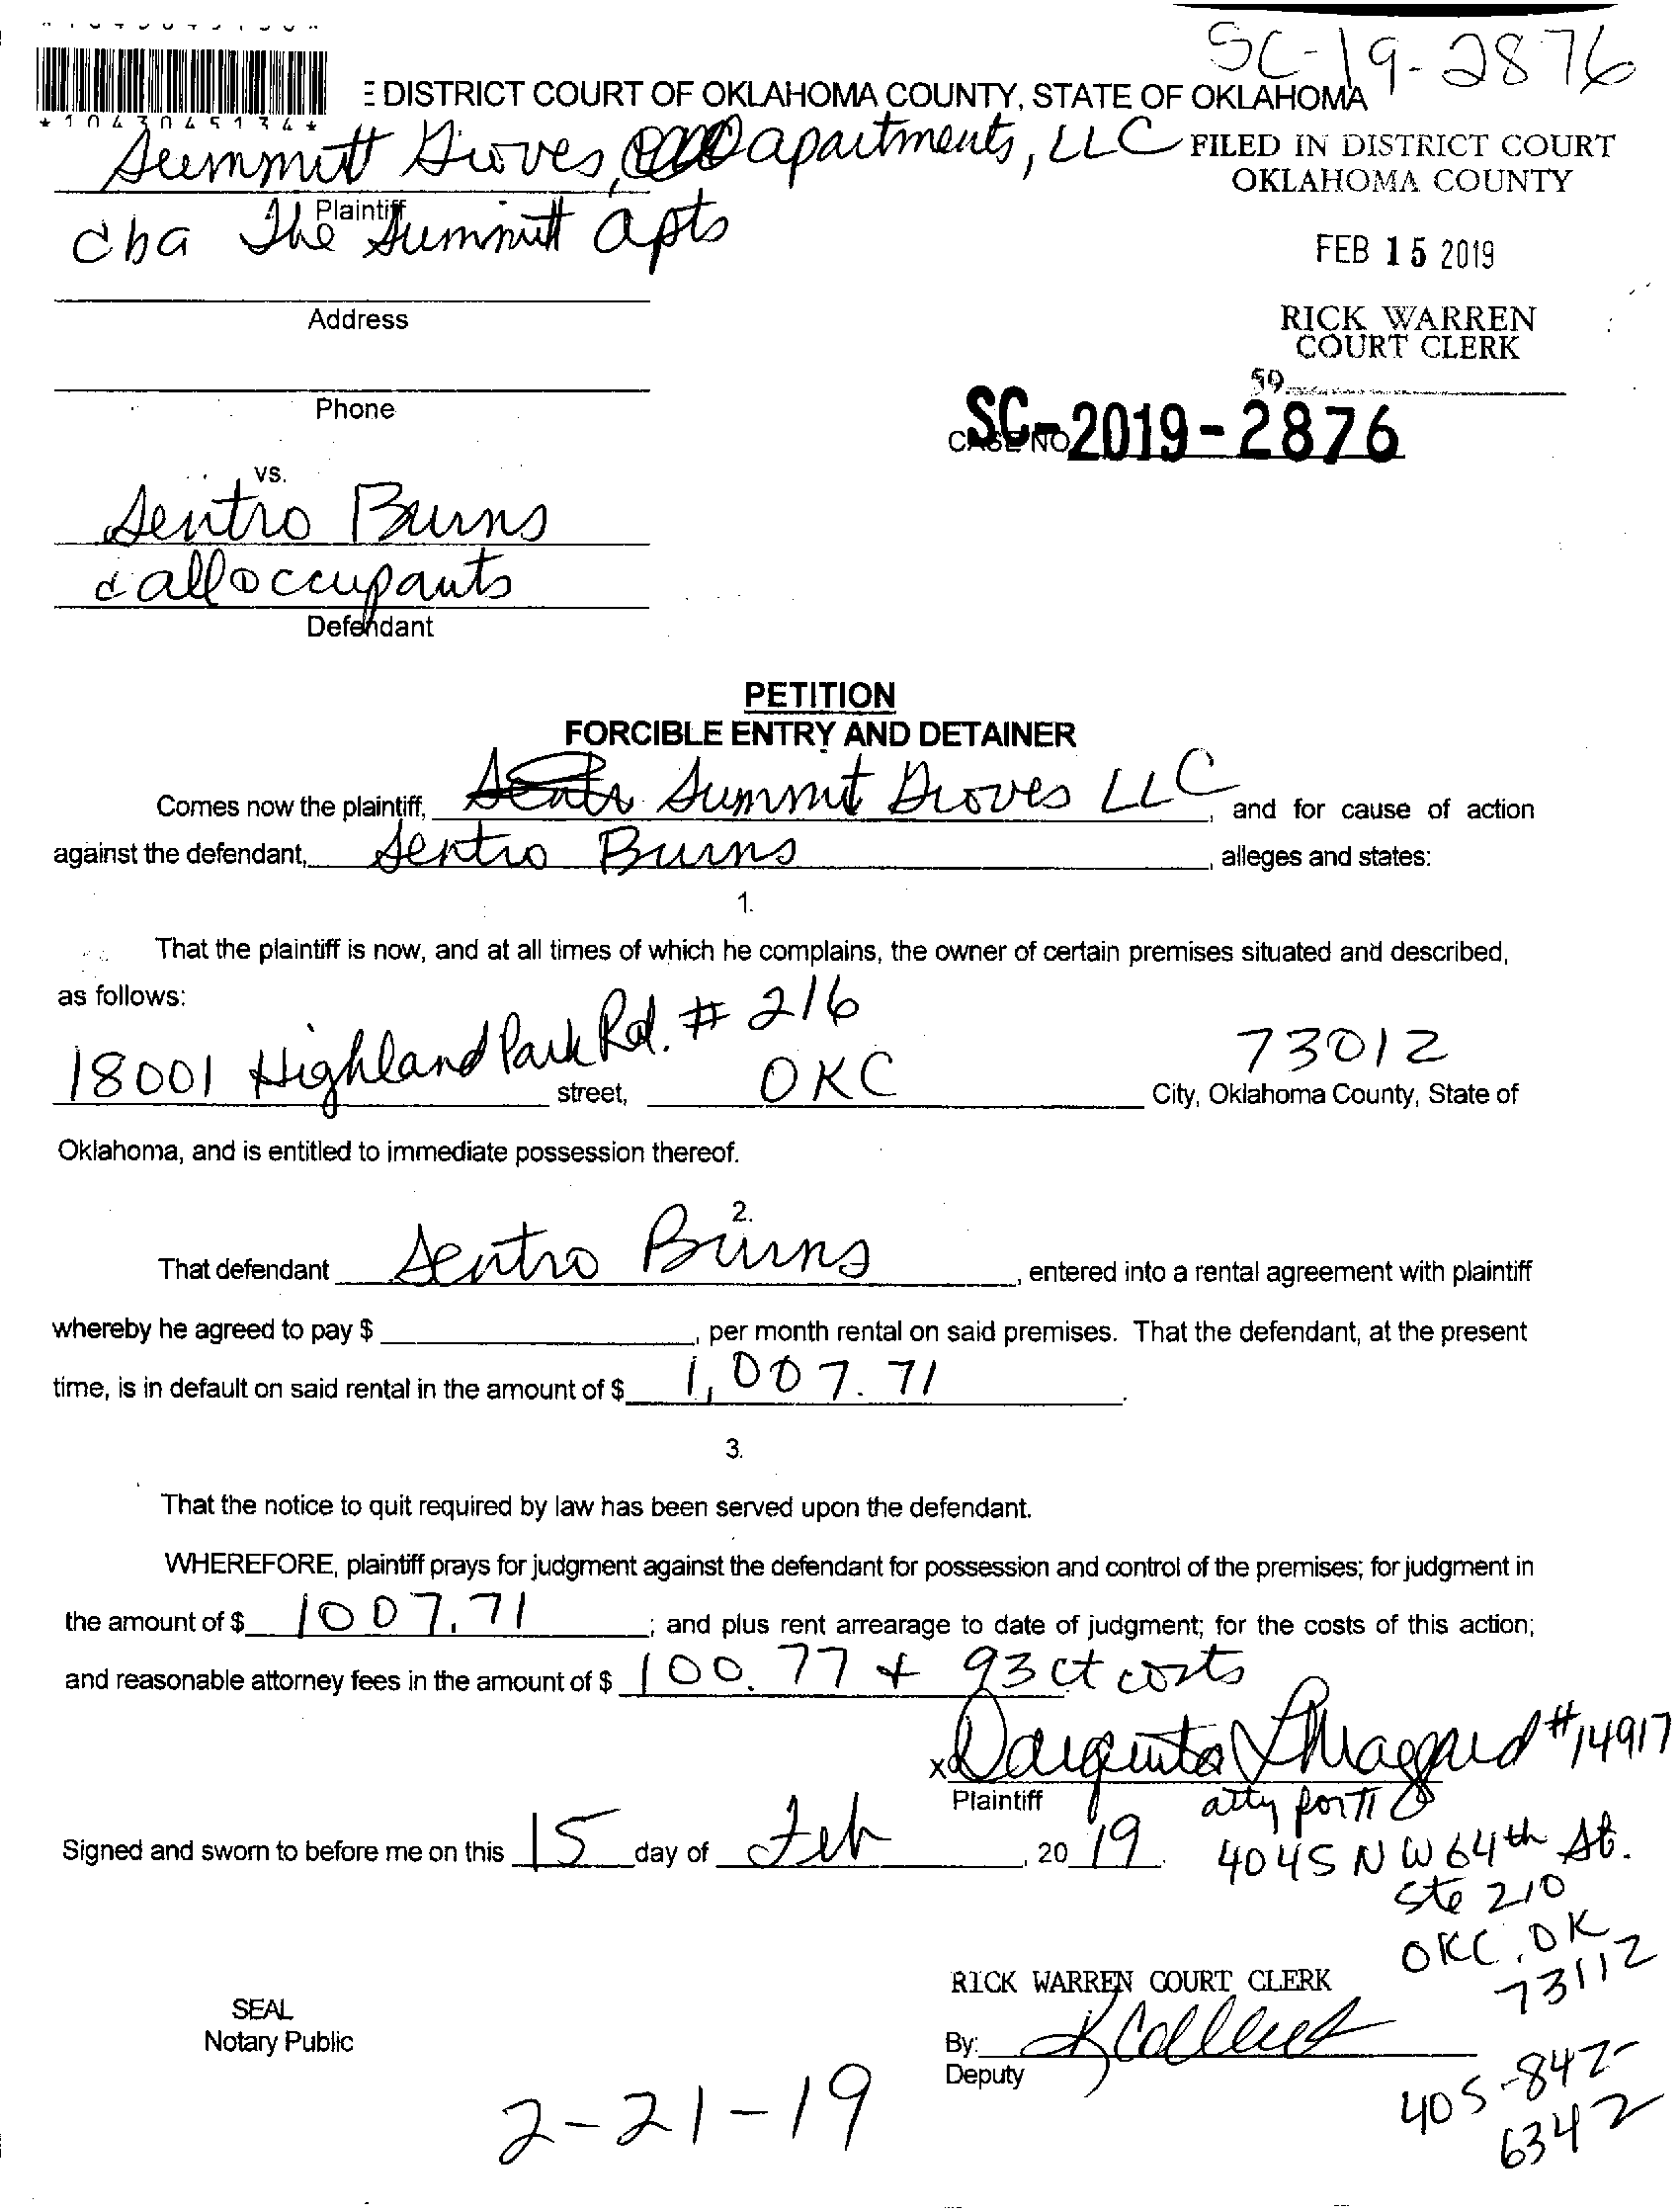 SC-19-2876
DISTRICT COURT OF OKLAHOMA COUNTY, STATE OF OKLAHOMA
*1043045134*
Summitt Groves, apartments, LLC
FILED IN DISTRICT COURT
OKLAHOMA COUNTY
Plaintiff
dba The Summitt apts
FEB 15 2019
Address
RICK WARREN
COURT CLERK
59
Phone
CASE NO SC-2019-2876
vs.
Sentro Burns
& all occupants
Defendant
PETITION
FORCIBLE ENTRY AND DETAINER
Comes now the plaintiff, Summit Groves LLC, and for cause of action
against the defendant, Sentro Burns, alleges and states:
1.
That the plaintiff is now, and at all times of which he complains, the owner of certain premises situated and described,
as follows:
18001 Highland Park Rd. # 216 street, OKC 73012 City, Oklahoma County, State of
Oklahoma, and is entitled to immediate possession thereof.
2.
That defendant Sentro Burns, entered into a rental agreement with plaintiff
whereby he agreed to pay $ , per month rental on said premises. That the defendant, at the present
time, is in default on said rental in the amount of $ 1,007.71.
3.
That the notice to quit required by law has been served upon the defendant.
WHEREFORE, plaintiff prays for judgment against the defendant for possession and control of the premises; for judgment in
the amount of $ 1007.71; and plus rent arrearage to date of judgment; for the costs of this action;
and reasonable attorney fees in the amount of $ 100.77 + 93 ct costs
x #14917
Plaintiff
atty for π
Signed and sworn to before me on this 15 day of Feb, 2019.
4045 NW 64th St.
Ste 210
OKC, OK
73112
RICK WARREN COURT CLERK
SEAL
Notary Public
By:
Deputy
405-842-
6342
2-21-19